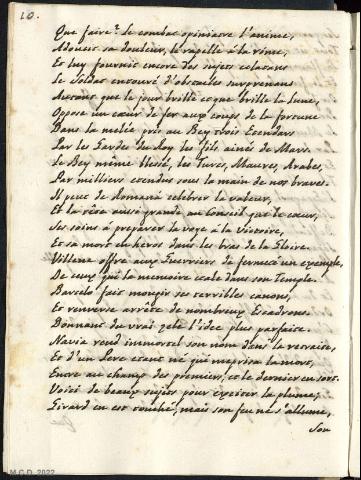 10.
Que faire? Le combat opiniatre l'anime,
Adoucit sa douleur, le rapelle à la rime,
Et luy fournit encore des sujets eclatans
Le Soldat entouré d'obstacles surprenans
Autant que le jour brille et que brille la lune,
Oppose un cœur de fer aux coups de la fortune
Dans la melée pris au Bey trois Etendars
Par les Gardes du Roy les fils ainés de Mars.
Le Bey même blessé, les Turcs, Maures, Arabes,
Par milliers etendus sous la main de nos braves.
Il peut de Romana celebrer la valeur,
Et la tête aussi grande au Conseil que le cœur,
Ses soins à preparer la voye à la Victoire,
Et sa mort en heros dans les bras de la Gloire.
Villena offre aux Guerriers de fermeté un exemple,
De ceux que la memoire etale dans son Temple.
Barcelo fait mougir ses terribles canons,
Et renverse arrête de nombreux Escadrons.
Donnant du vrai zele l'idée plus parfaite.
Navia rend immortel son nom dans la retraite,
Et d'un Pere etant né qui meprisa la mort,
Entre au champ des premiers, et le dernier en sort.
Voici de beaux sujets pour exciter la plume;
Girard en est touché, mais son feu ne s'allume,
Son
M.C.D. 2022